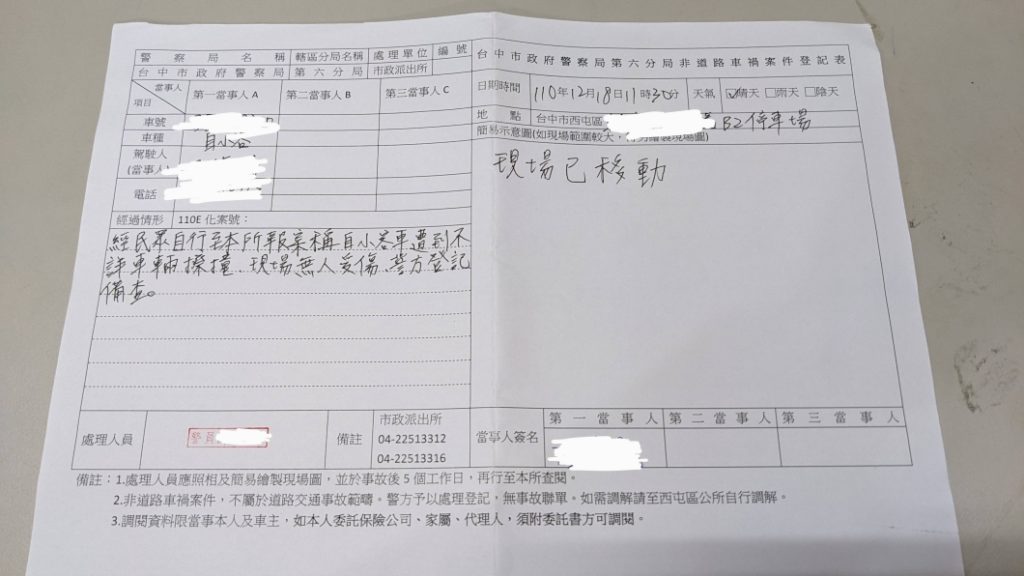 警察局名稱 轄區分局名稱 處理單位 編號 台中市政府警察局第六分局非道路車禍案件登記表
台中市政府警察局 第六分局 市政派出所
當事人 項目 第一當事人A 第二當事人B 第三當事人C
日期時間 110年12月18日11時30分 天氣 ☑晴天 □雨天 □陰天
車號
地點 台中市西屯區 B2停車場
車種 自小客
簡易示意圖(如現場範圍較大,
繪製現場圖)
駕駛人
(當事人)
現場已移動
電話
經過情形 110E化案號:
經民眾自行至本所報案稱自小客車遭到不
詳車輛擦撞、現場無人受傷、警方登記
備查。
處理人員 警員 備註
市政派出所
04-22513312
04-22513316
當事人簽名 第一當事人 第二當事人 第三當事人
備註:1.處理人員應照相及簡易繪製現場圖,並於事故後5個工作日,再行至本所查閱。
2.非道路車禍案件,不屬於道路交通事故範疇。警方予以處理登記,無事故聯單。如需調解請至西屯區公所自行調解。
3.調閱資料限當事本人及車主,如本人委託保險公司、家屬、代理人,須附委託書方可調閱。